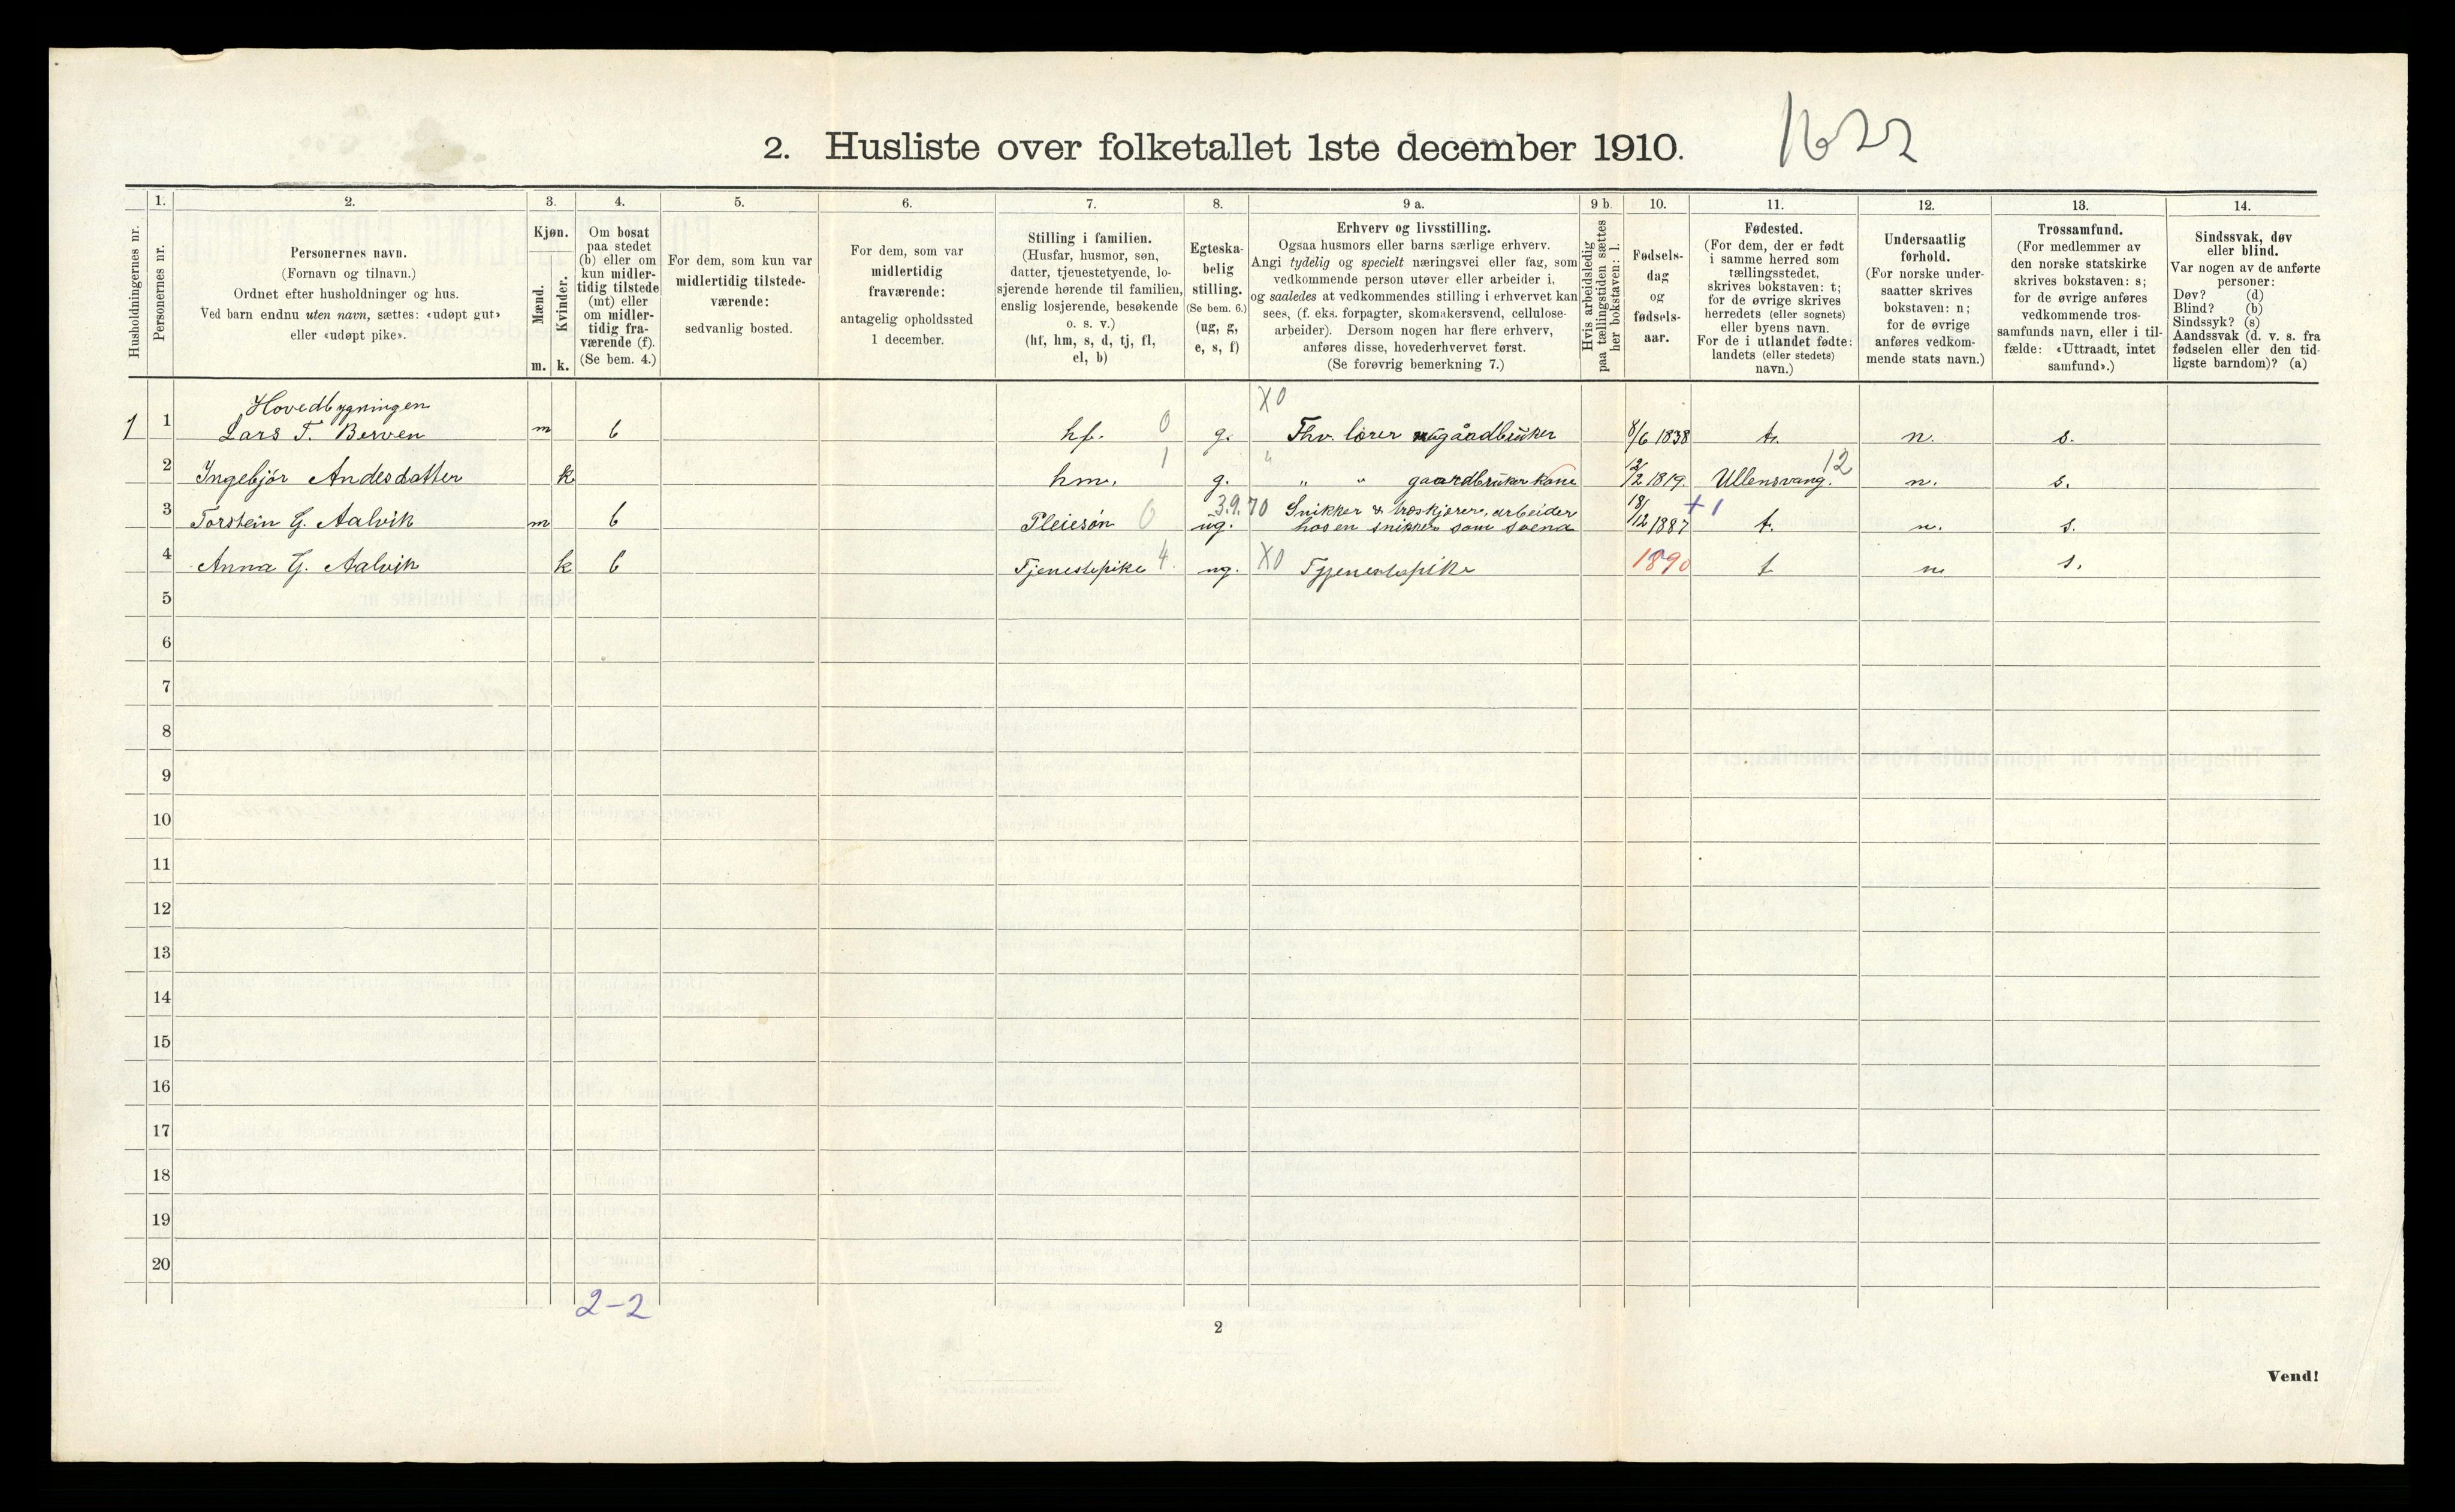 2. Husliste over folketallet 1ste december 1910.
1622
Husholdningernes nr.
1.
Personernes nr.
2.
Personernes navn.
(Fornavn og tilnavn.)
Ordnet efter husholdninger og hus.
Ved barn endnu uten navn, sættes: «udøpt gut»
eller «udøpt pike».
3.
Kjøn.
Mænd.
Kvinder.
m. k.
4.
Om bosat
paa stedet
(b) eller om
kun midler-
tidig tilstede
(mt) eller
om midler-
tidig fra-
værende (f).
(Se bem. 4.)
5.
For dem, som kun var
midlertidig tilstede-
værende:
sedvanlig bosted.
6.
For dem, som var
midlertidig
fraværende:
antagelig opholdssted
1 december.
7.
Stilling i familien.
(Husfar, husmor, søn,
datter, tjenestetyende, lo-
sjerende hørende til familien,
enslig losjerende, besøkende
o. s. v.)
(hf, hm, s, d, tj, fl,
el, b)
8.
Egteska-
belig
stilling.
(Se bem. 6.)
(ug, g,
e, s, f)
9 a.
Erhverv og livsstilling.
Ogsaa husmors eller barns særlige erhverv.
Angi tydelig og specielt næringsvei eller fag, som
vedkommende person utøver eller arbeider i,
og saaledes at vedkommendes stilling i erhvervet kan
sees, (f. eks. forpagter, skomakersvend, cellulose-
arbeider). Dersom nogen har flere erhverv,
anføres disse, hovederhvervet først.
(Se forøvrig bemerkning 7.)
9 b.
Hvis arbeidsledig
paa tællingstiden sættes
her bokstaven: l.
10.
Fødsels-
dag
og
fødsels-
aar.
11.
Fødested.
(For dem, der er født
i samme herred som
tællingsstedet,
skrives bokstaven: t;
for de øvrige skrives
herredets (eller sognets)
eller byens navn.
For de i utlandet fødte:
landets (eller stedets)
navn.)
12.
Undersaatlig
forhold.
(For norske under-
saatter skrives
bokstaven: n;
for de øvrige
anføres vedkom-
mende stats navn.)
13.
Trossamfund.
(For medlemmer av
den norske statskirke
skrives bokstaven: s;
for de øvrige anføres
vedkommende tros-
samfunds navn, eller i til-
fælde: «Uttraadt, intet
samfund».)
14.
Sindssvak, døv
eller blind.
Var nogen av de anførte
personer:
Døv? (d)
Blind? (b)
Sindssyk? (s)
Aandssvak (d. v. s. fra
fødselen eller den tid-
ligste barndom)? (a)
Hovedbygningen X0
1 1 Lars T. Berven m b hf. 0 g. Fhv. lærer gåardbruker 8/6 1838 t. n. s.
2 Ingebjør Andesdatter k hm. 1 g. " " gaardbruker kone 12/2 1819. Ullensvang. 12 n. s.
3.9.70 Snikker & træskjærer, arbeider + 1
3 Torstein G. Aalvik m b Pleiesøn 6 ug. hos en snikker som svend 18/12 1887 t. n. s.
4 Anna G. Aalvik k b Tjenestepike 4. ug. X0 Tjenestepike 1890 t n. s.
5
6
7
8
9
10
11
12
13
14
15
16
17
18
19
20
2-2
2
Vend!